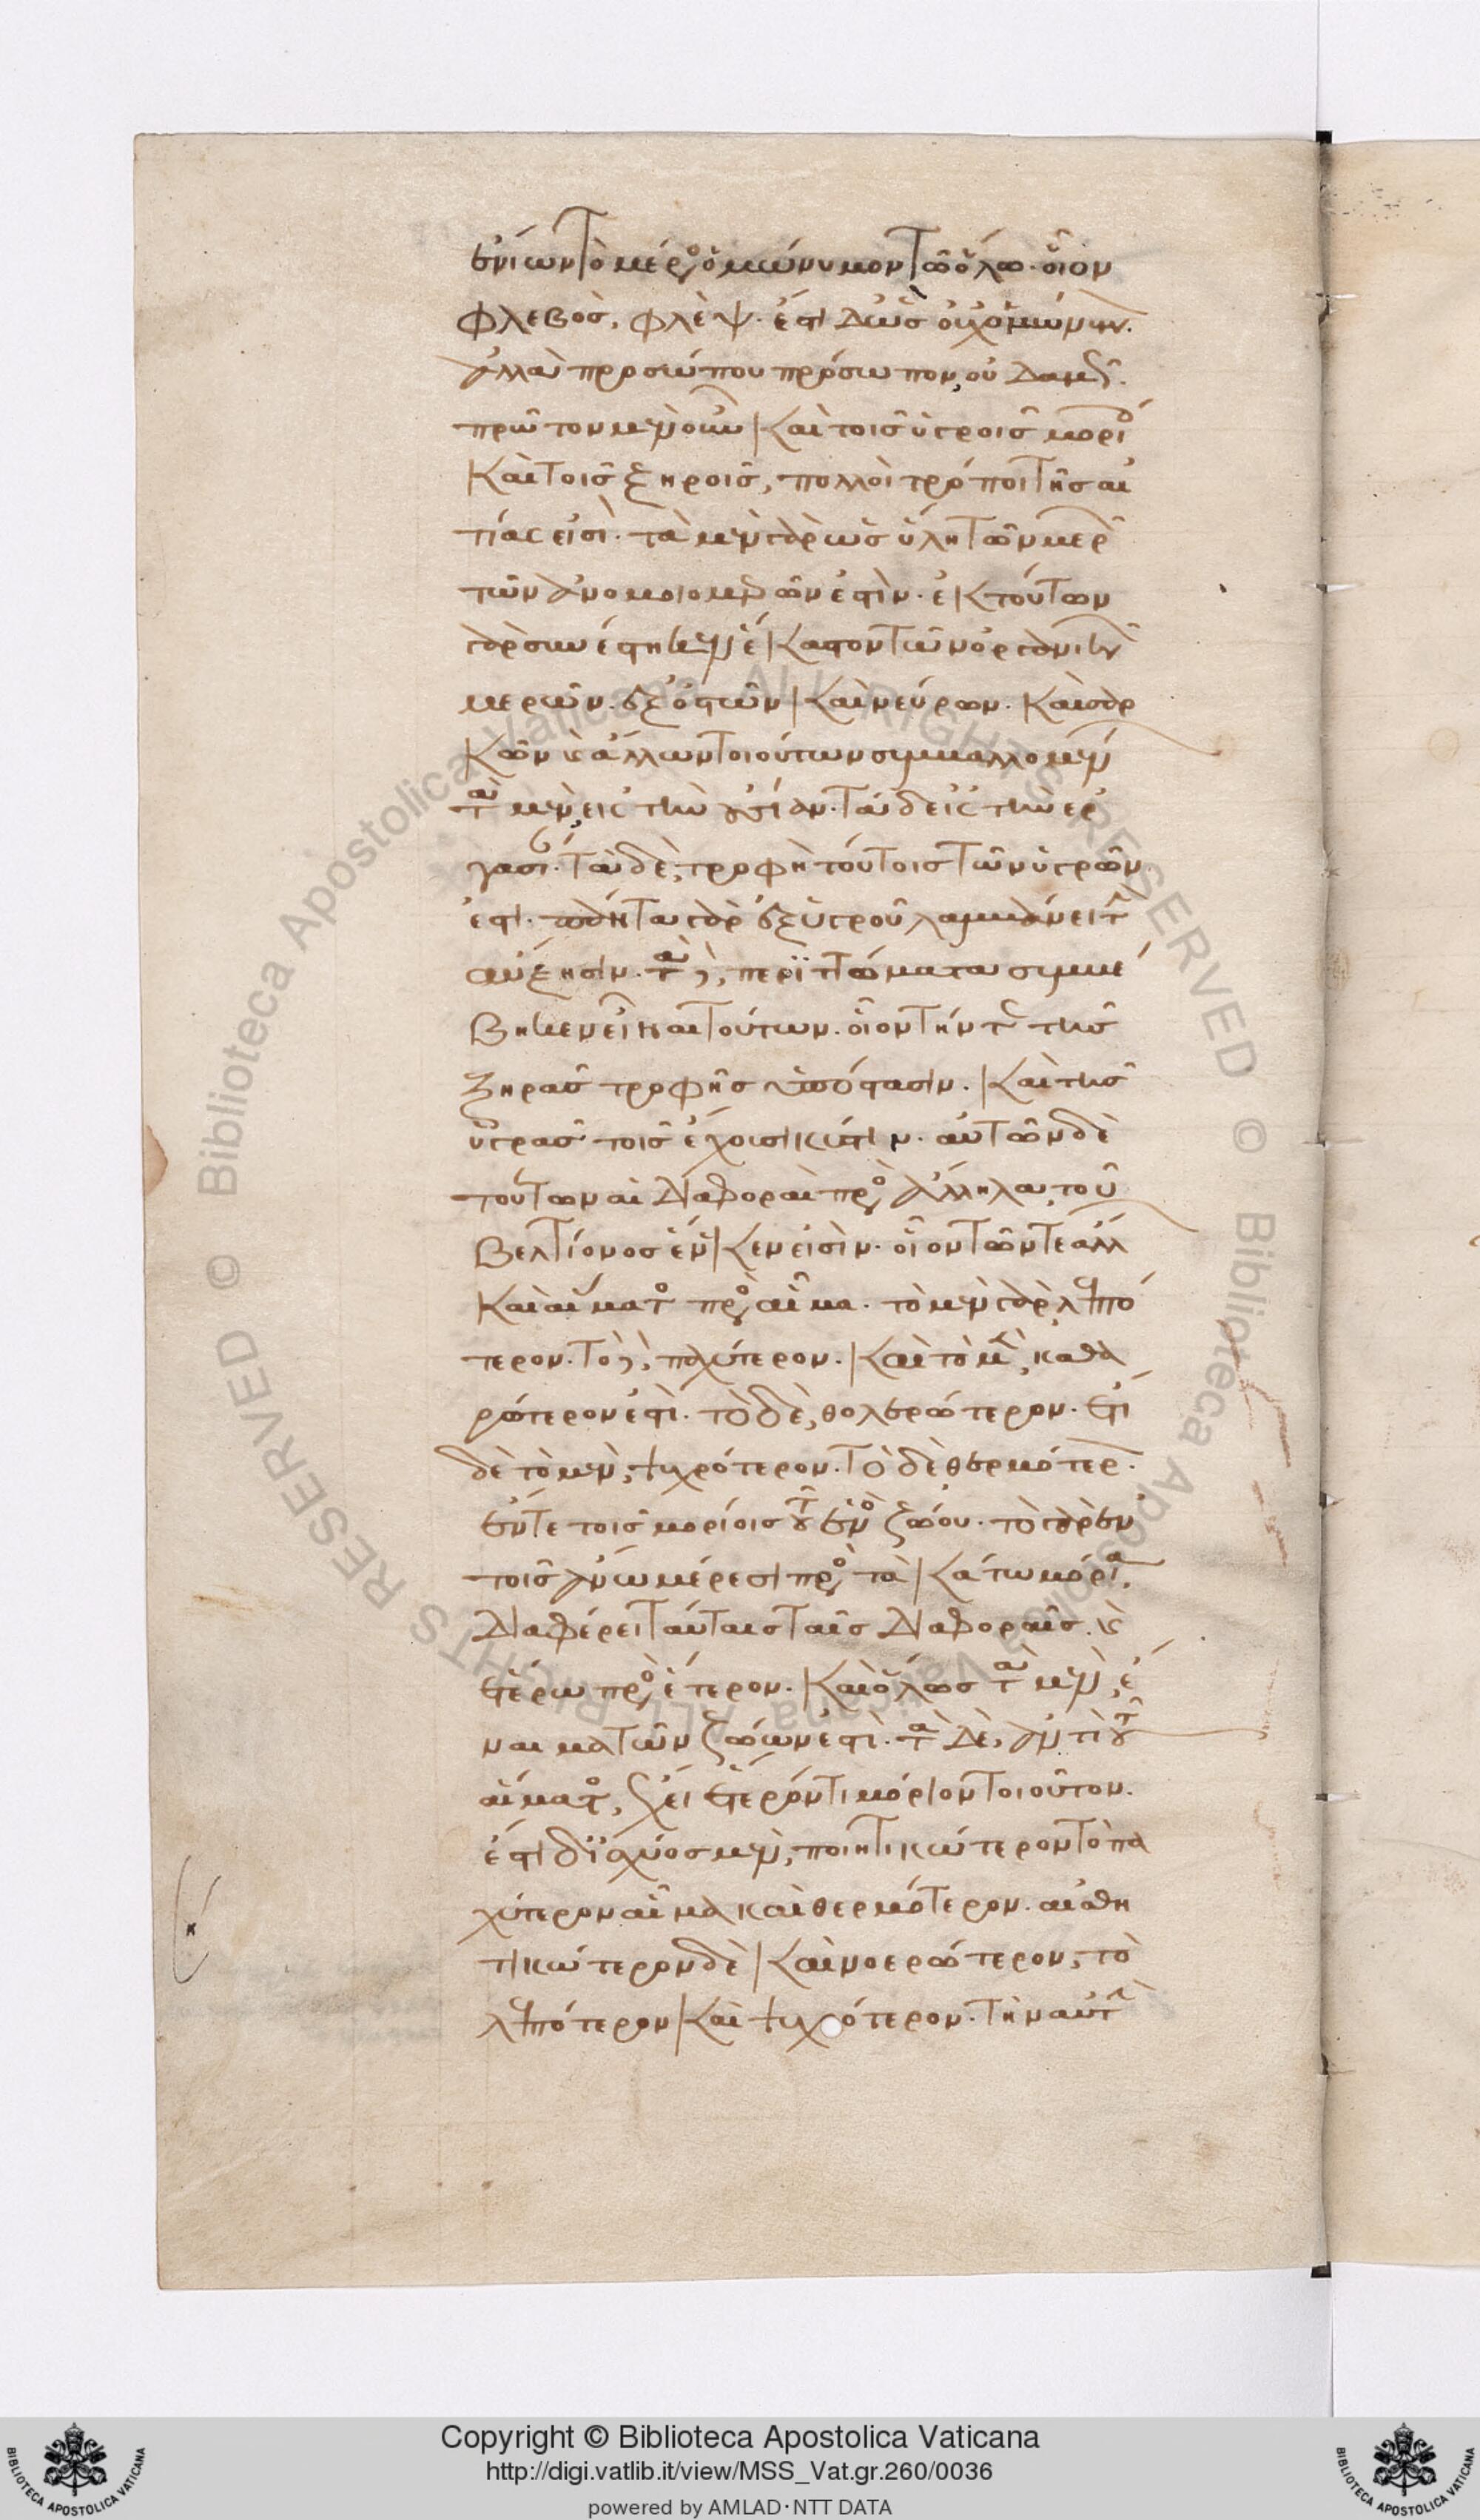 ἐνίων τὸ μέρος ὁμώνυμον τῶ ὅλω· οἷον
φλεβὸς, φλὲψ· ἔστι δ' ὡς οὐχ ὁμώνυμον·
ἀλλὰ προσώπου πρόσωπον, οὐδαμῶς·
πρῶτον μὲν οὖν καὶ τοῖς ὑγροῖς μορίοις
καὶ τοῖς ξηροῖς, πολλοὶ τρόποι τῆς αἰ
τίας εἰσὶ· τὰ μὲν γὰρ ὡς ὕλη τῶν μερῶν
τῶν ἀνομοιομερῶν ἐστὶν· ἐκ τούτων
γὰρ συνέστηκεν ἕκαστον τῶν ὀργανικῶν
μερῶν· ἐξ ὀστῶν καὶ νεύρων· καὶ σαρ
κῶν καὶ ἄλλων τοιούτων συμβαλλομένων
τὰ μὲν εἰς τὴν οὐσίαν· τὰ δ' εἰς τὴν ἐρ
γασίαν· τὰ δὲ, τροφὴ τούτοις τῶν ὑγρῶν
ἐστι· πάντα γὰρ ἐξ ὑγροῦ λαμβάνει τὴν
αὔξησιν· τὰ δὲ, περιττώματα συμβέ
βηκεν εἶναι τούτων· οἷον τήν τε τῆς
ξηρᾶς τροφῆς ὑπόστασιν· καὶ τῆς
ὑγρᾶς τοῖς ἔχουσι κύστιν· αὐτῶν δὲ
τούτων αἱ διαφοραὶ πρὸς ἄλληλα, τοῦ
βελτίονος ἕνεκεν εἰσὶν· οἷον τῶν τε ἄλλων
καὶ αἵματος πρὸς αἷμα· τὸ μὲν γὰρ, λεπτό
τερον· τὸ δὲ, παχύτερον· καὶ τὸ μὲν, καθα
ρώτερον ἐστὶ· τὸ δὲ, θολερώτερον· ἔτι
δὲ τὸ μὲν, ψυχρότερον· τὸ δὲ θερμότερον·
ἔν τε τοῖς μορίοις τοῦ ἑνὸς ζώου· τὸ γὰρ ἐν
τοῖς ἄνω μέρεσι πρὸς τὰ κάτω μόρια,
διαφέρει ταύταις ταῖς διαφοραῖς· καὶ
ἑτέρω πρὸς ἕτερον· καὶ ὅλως τὰ μὲν, ἔ
ναιμα τῶν ζώων ἐστὶ· τὰ δὲ, ἀντὶ τοῦ
αἵματος, ἔχει ἕτερόν τι μόριον τοιοῦτον·
ἔστι δ' ἰσχύος μὲν, ποιητικώτερον τὸ πα
χύτερον αἷμα καὶ θερμότερον· αἰσθη
τικώτερον δὲ καὶ νοερώτερον, τὸ
λεπτότερον καὶ ψυχρότερον· τὴν αὐτὴν
Copyright © Biblioteca Apostolica Vaticana
http://digi.vatlib.it/view/MSS_Vat.gr.260/0036
powered by AMLAD·NTT DATA